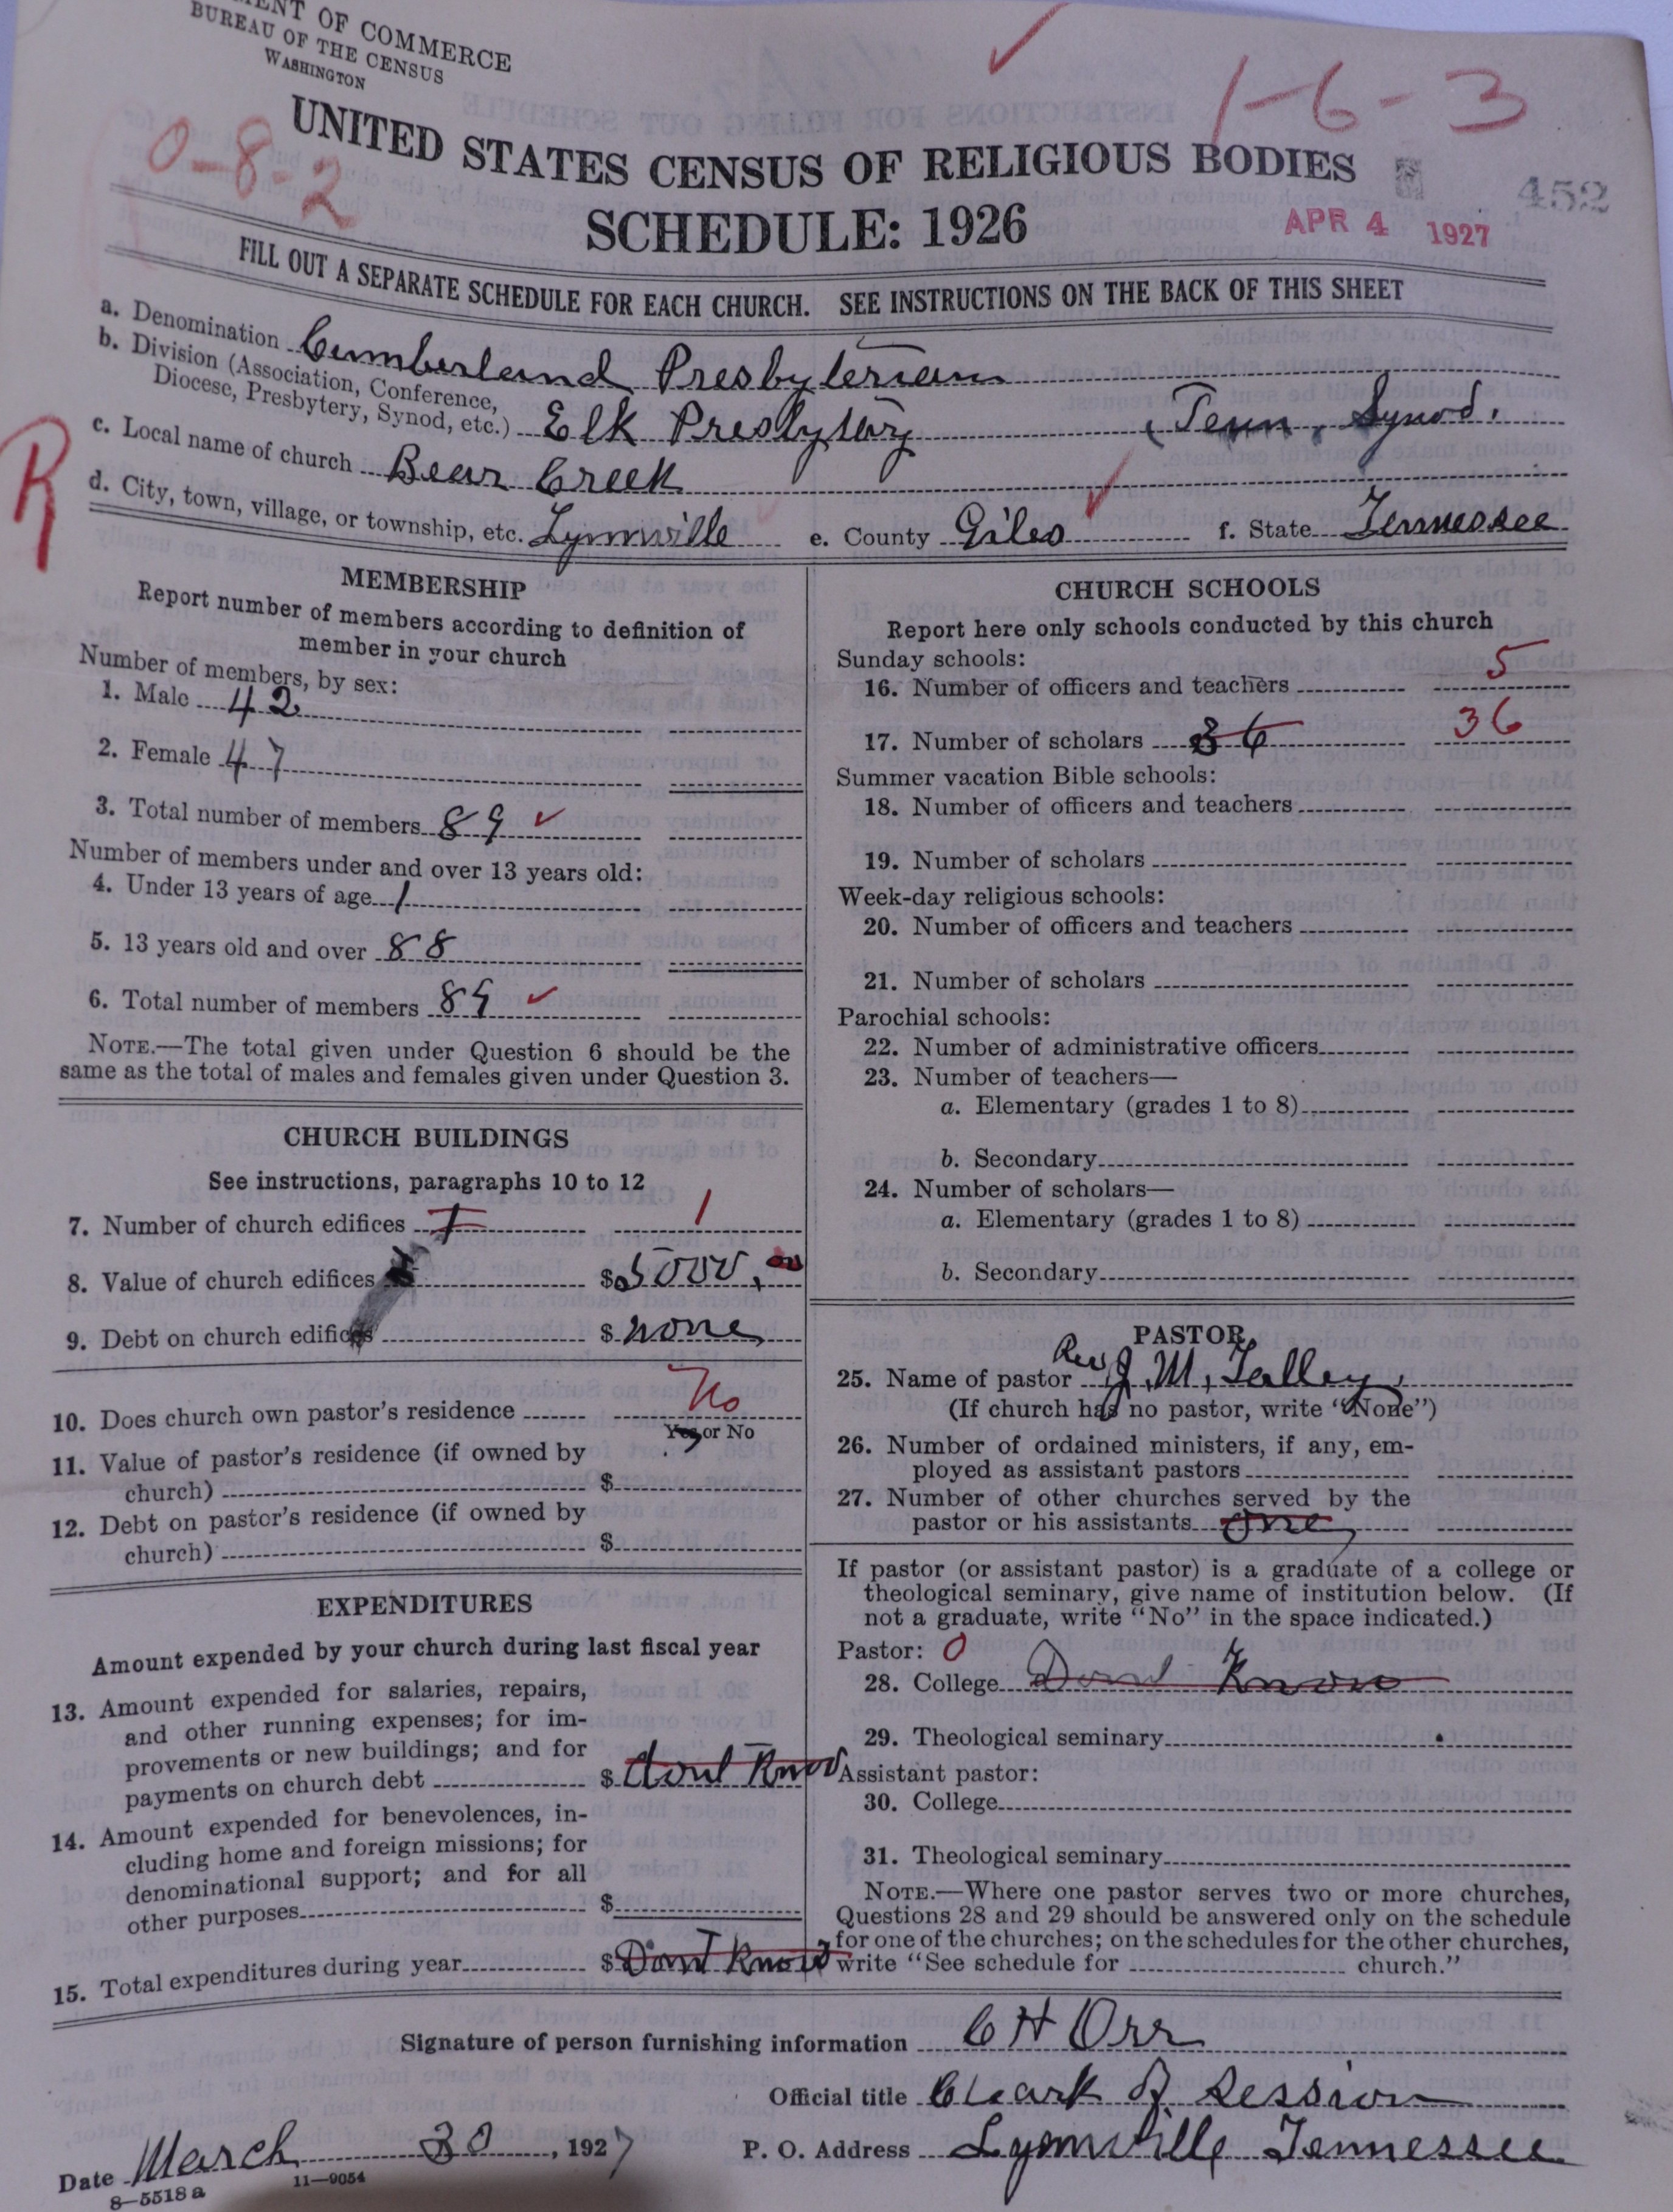 MENT OF COMMERCE
BUREAU OF THE CENSUS
WASHINGTON
1-6-3
0-8-2
UNITED STATES CENSUS OF RELIGIOUS BODIES
452
SCHEDULE: 1926
APR 4 1927
FILL OUT A SEPARATE SCHEDULE FOR EACH CHURCH. SEE INSTRUCTIONS ON THE BACK OF THIS SHEET
a. Denomination Cumberland Presbyterian
b. Division (Association, Conference,
Diocese, Presbytery, Synod, etc.) Elk Presbytery, Tenn, Synod.
R
c. Local name of church Bear Creek
d. City, town, village, or township, etc. Lynnville e. County Giles f. State Tennessee
MEMBERSHIP
Report number of members according to definition of
member in your church
Number of members, by sex:
1. Male 42
2. Female 47
3. Total number of members 89 ✓
Number of members under and over 13 years old:
4. Under 13 years of age 1
5. 13 years old and over 88
6. Total number of members 89 ✓
NOTE.—The total given under Question 6 should be the
same as the total of males and females given under Question 3.
CHURCH BUILDINGS
See instructions, paragraphs 10 to 12
7. Number of church edifices 1 1
8. Value of church edifices $5000.00
9. Debt on church edifices $ none
10. Does church own pastor's residence No
Yes or No
11. Value of pastor's residence (if owned by
church) $
12. Debt on pastor's residence (if owned by
church) $
EXPENDITURES
Amount expended by your church during last fiscal year
13. Amount expended for salaries, repairs,
and other running expenses; for im-
provements or new buildings; and for
payments on church debt $ dont Know
14. Amount expended for benevolences, in-
cluding home and foreign missions; for
denominational support; and for all
other purposes $
15. Total expenditures during year $ Dont Know
CHURCH SCHOOLS
Report here only schools conducted by this church
Sunday schools:
16. Number of officers and teachers 5
17. Number of scholars 36 36
Summer vacation Bible schools:
18. Number of officers and teachers
19. Number of scholars
Week-day religious schools:
20. Number of officers and teachers
21. Number of scholars
Parochial schools:
22. Number of administrative officers
23. Number of teachers—
a. Elementary (grades 1 to 8)
b. Secondary
24. Number of scholars—
a. Elementary (grades 1 to 8)
b. Secondary
PASTOR
25. Name of pastor Rev J. M. Talley,
(If church has no pastor, write "None")
26. Number of ordained ministers, if any, em-
ployed as assistant pastors
27. Number of other churches served by the
pastor or his assistants one
If pastor (or assistant pastor) is a graduate of a college or
theological seminary, give name of institution below. (If
not a graduate, write "No" in the space indicated.)
Pastor: 0
28. College Dont Know
29. Theological seminary
Assistant pastor:
30. College
31. Theological seminary
NOTE.—Where one pastor serves two or more churches,
Questions 28 and 29 should be answered only on the schedule
for one of the churches; on the schedules for the other churches,
write "See schedule for church."
Signature of person furnishing information C H Orr
Official title Cleark of Session
Date March 30, 1927 P. O. Address Lynnville Tennessee
8—5518 a 11—9054